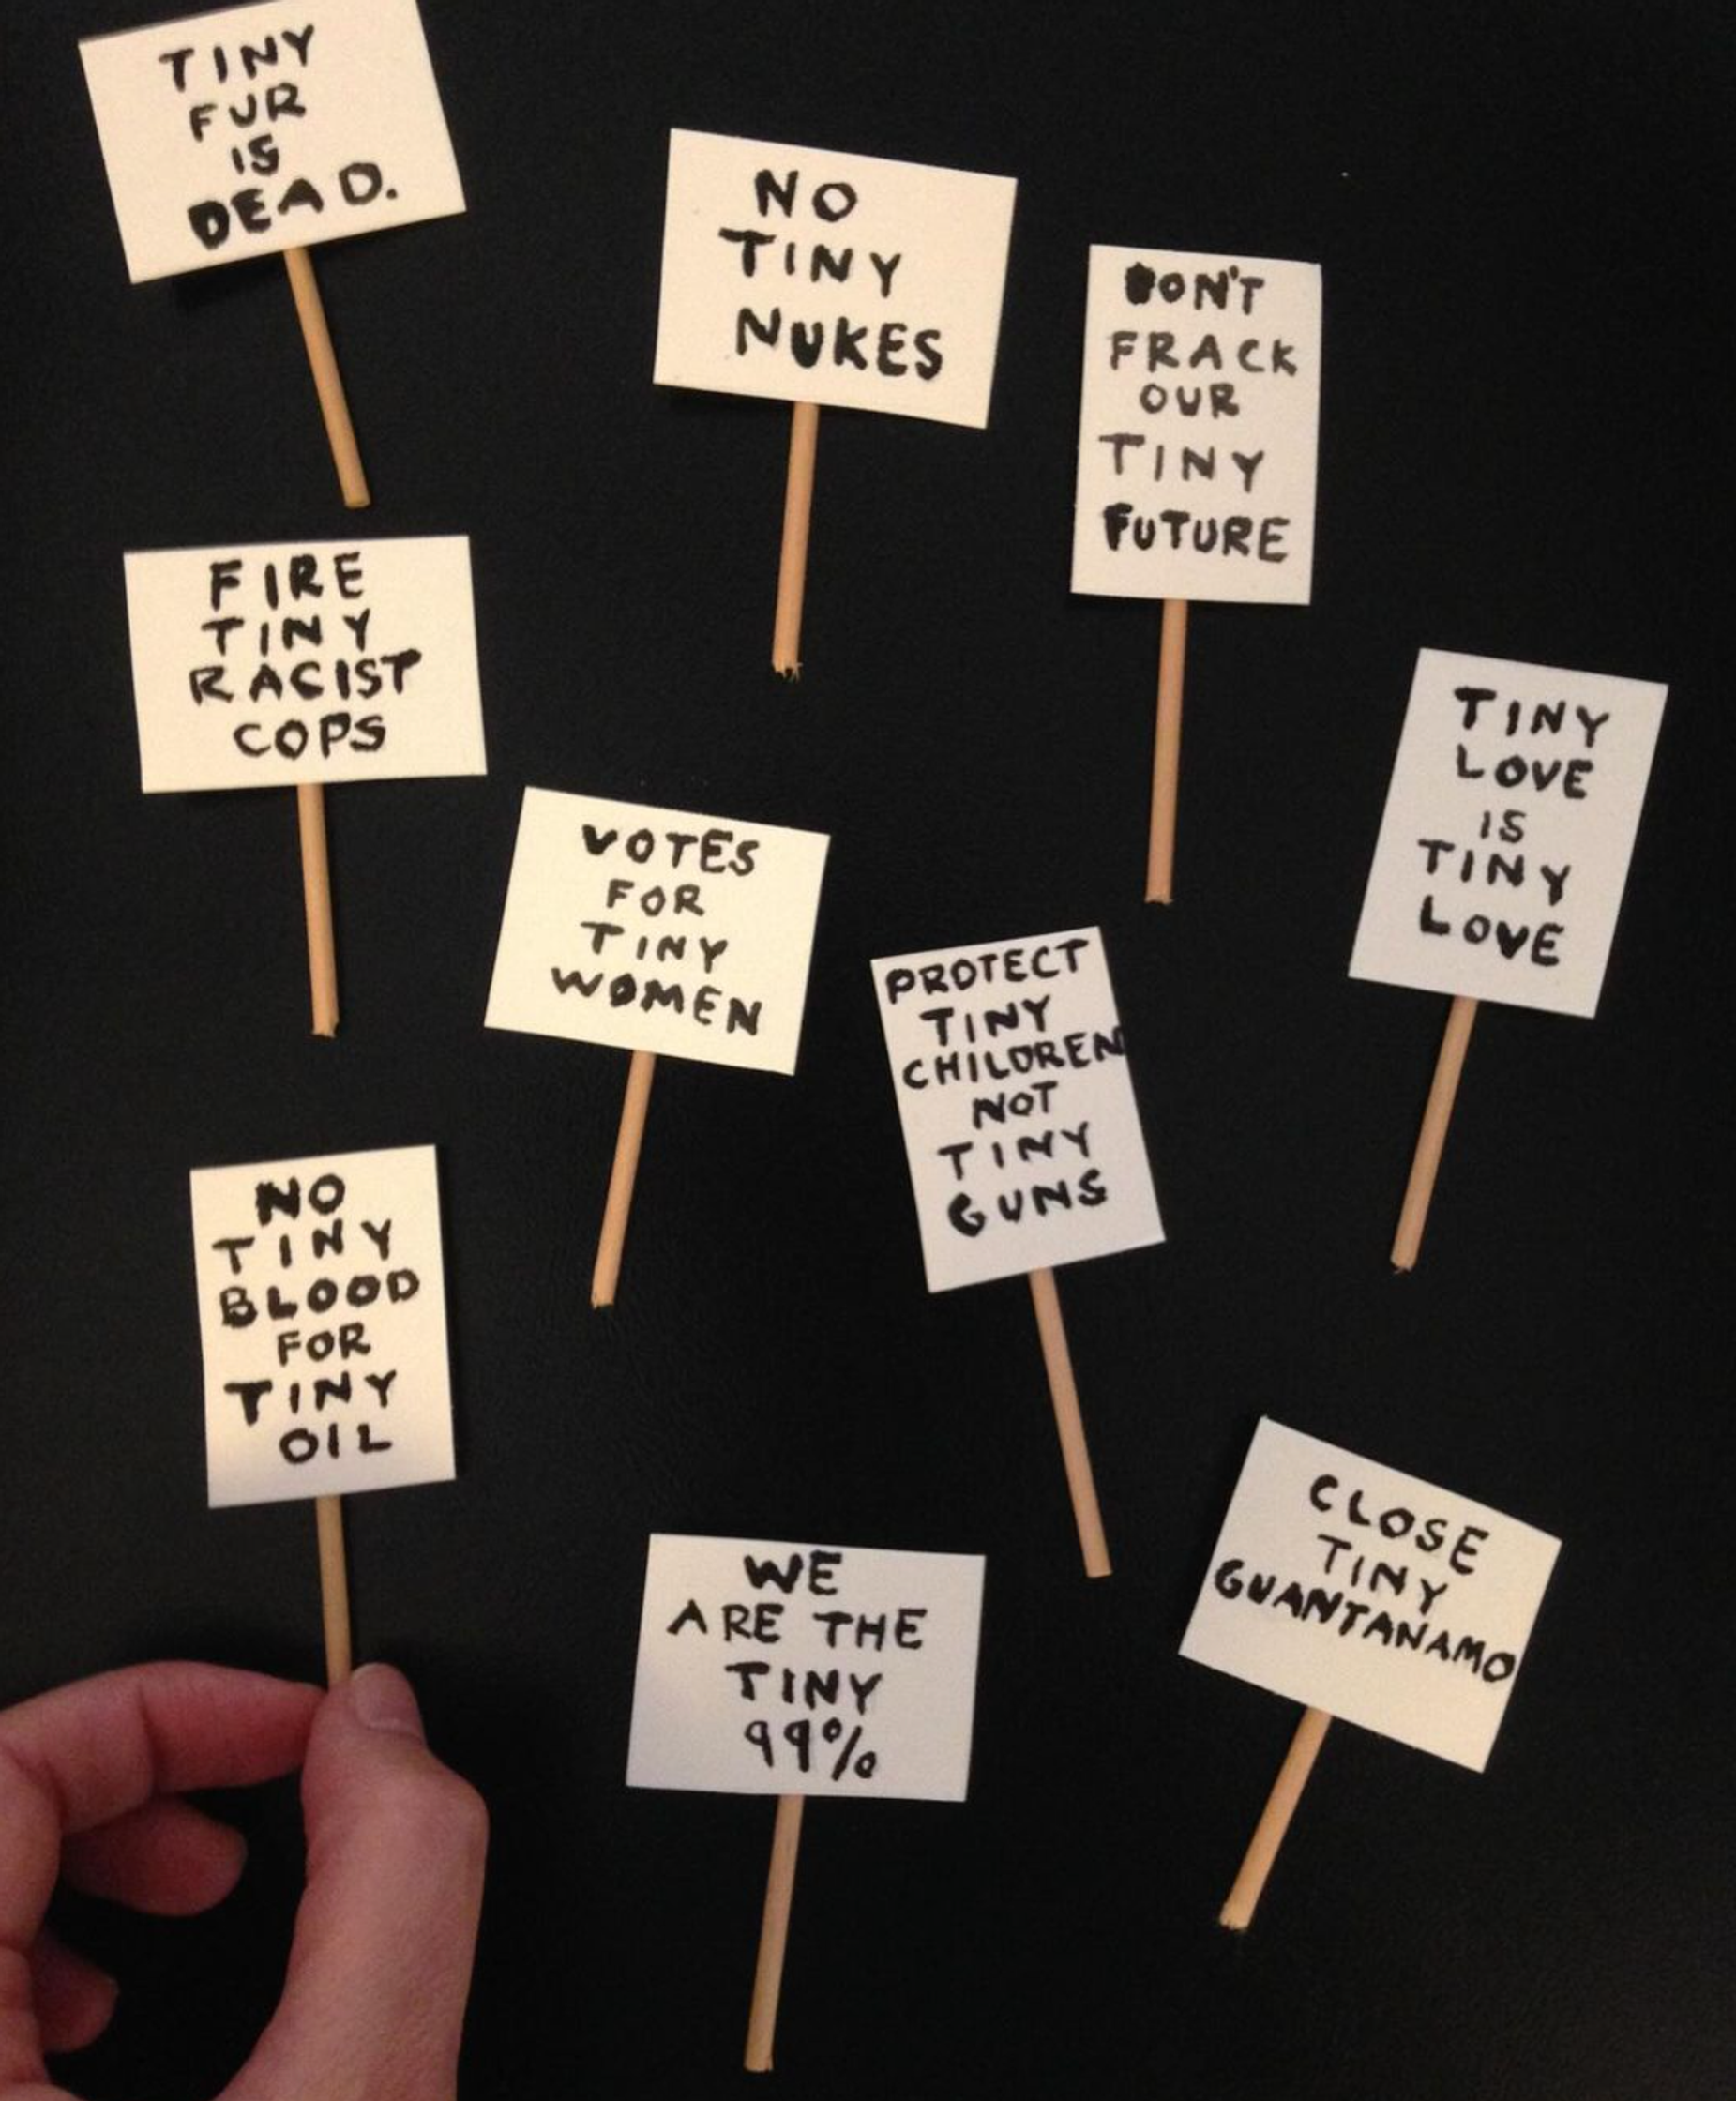 TINY
FUR
IS
DEAD.
NO
TINY
NUKES
DON'T
FRACK
OUR
TINY
FUTURE
FIRE
TINY
RACIST
COPS
TINY
LOVE
IS
TINY
LOVE
VOTES
FOR
TINY
WOMEN
PROTECT
TINY
CHILDREN
NOT
TINY
GUNS
NO
TINY
BLOOD
FOR
TINY
OIL
CLOSE
TINY
GUANTANAMO
WE
ARE THE
TINY
99%